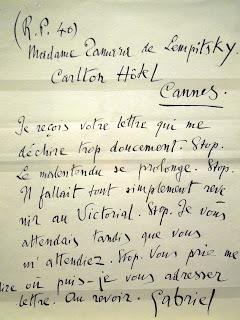 (R.P. 40)
Madame Tamara de Lempitsky
Carlton Hôtel
Cannes.
Je reçois votre lettre qui me
déchire trop doucement. Stop.
Le malentendu se prolonge. Stop.
Il fallait tout simplement reve
nir au Victorial. Stop. Je vous
attendais tandis que vous
m'attendiez. Stop. Vous prie me
dire où puis-je vous adresser
lettre. Au revoir. Gabriel